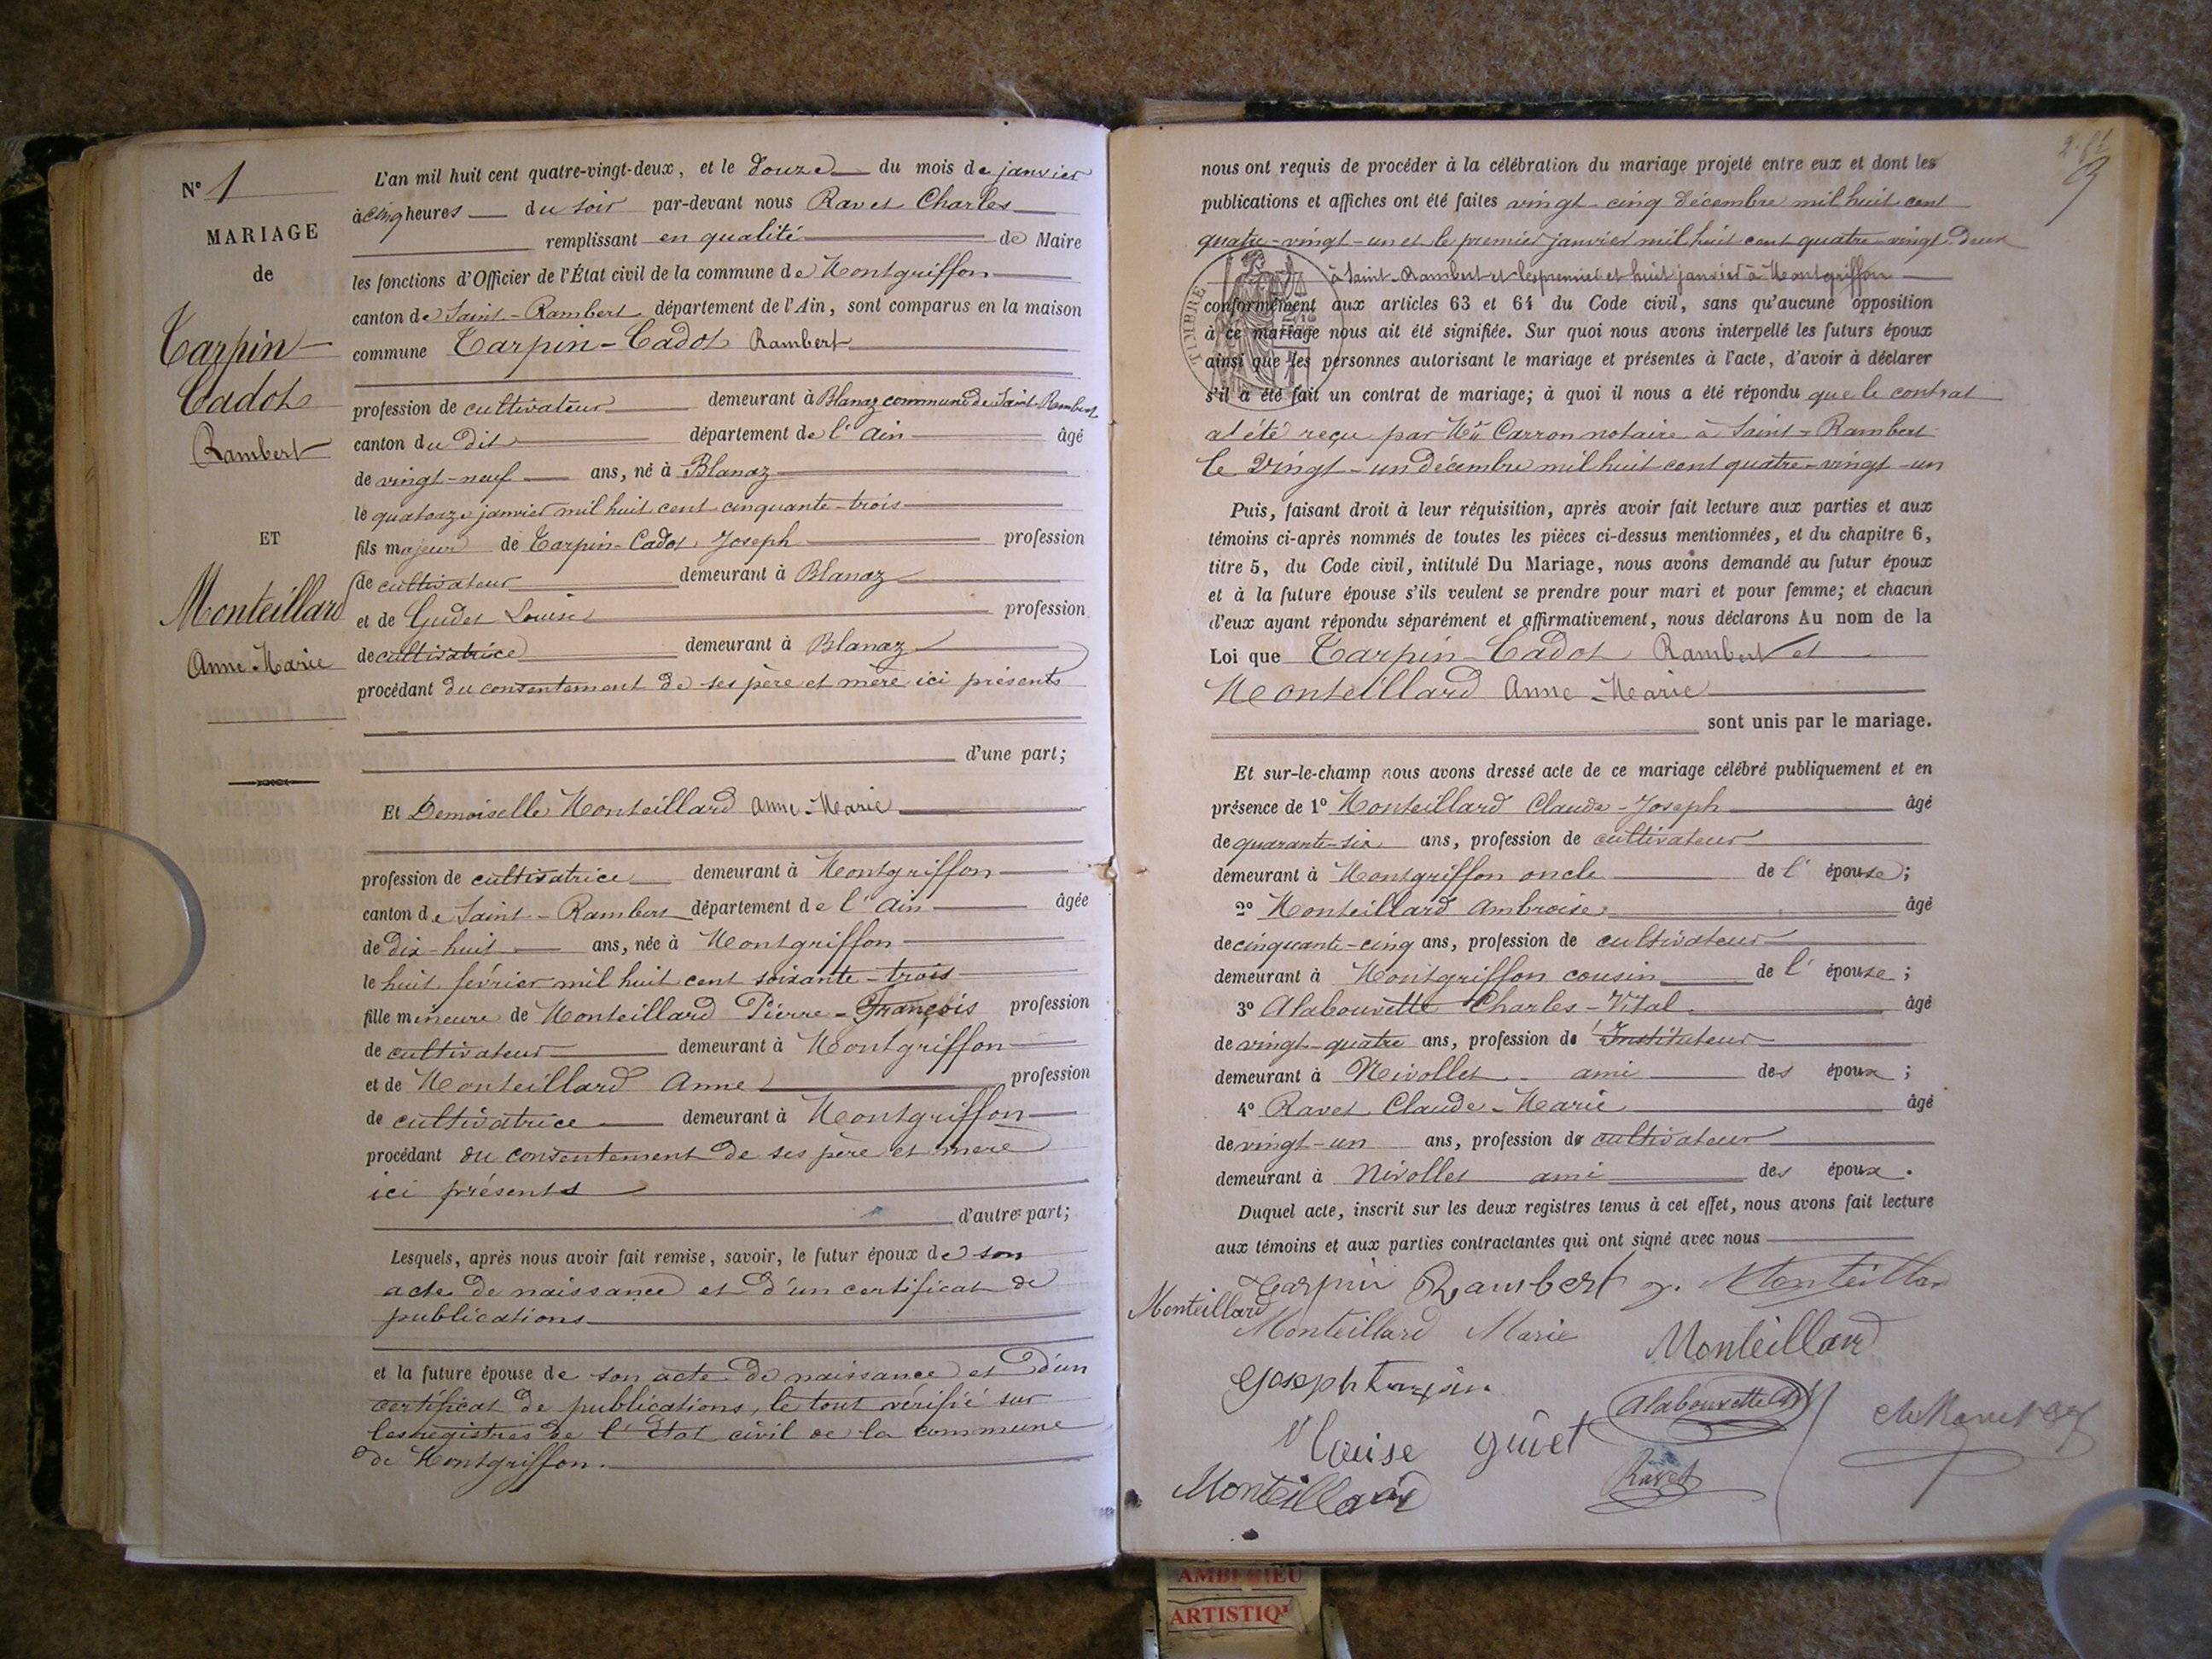 N° 1
MARIAGE
de
Tarpin
Cadot
Rambert
ET
Monteillard
Anne-Marie
L'an mil huit cent quatre-vingt-deux, et le douze du mois de janvier
à cinq heures du soir par-devant nous Ravet Charles
remplissant en qualité de Maire
les fonctions d'Officier de l'État civil de la commune de Montgriffon
canton de Saint-Rambert département de l'Ain, sont comparus en la maison
commune Tarpin-Cadot Rambert
profession de cultivateur demeurant à Blanaz commune de Saint-Rambert
canton du dit département de l'Ain âgé
de vingt-neuf ans, né à Blanaz
le quatorze janvier mil huit cent cinquante-trois
fils majeur de Tarpin-Cadot Joseph profession
de cultivateur demeurant à Blanaz
et de Gudet Louise profession
de cultivatrice demeurant à Blanaz
procédant du consentement de ses père et mère ici présents
d'une part;
Et Demoiselle Monteillard Anne-Marie
profession de cultivatrice demeurant à Montgriffon
canton de Saint-Rambert département de l'Ain âgée
de dix-huit ans, née à Montgriffon
le huit février mil huit cent soixante-trois
fille mineure de Monteillard Pierre-François profession
de cultivateur demeurant à Montgriffon
et de Monteillard Anne profession
de cultivatrice demeurant à Montgriffon
procédant du consentement de ses père et mère
ici présents
d'autre part;
Lesquels, après nous avoir fait remise, savoir, le futur époux de son
acte de naissance et d'un certificat de
publications
et la future épouse de son acte de naissance et d'un
certificat de publications, le tout vérifié sur
les registres de l'État civil de la commune
de Montgriffon.
nous ont requis de procéder à la célébration du mariage projeté entre eux et dont les
publications et affiches ont été faites vingt-cinq décembre mil huit cent
quatre-vingt-un et le premier janvier mil huit cent quatre-vingt-deux
à Saint-Rambert et les premier et huit janvier à Montgriffon
TIMBRE
conformément aux articles 63 et 64 du Code civil, sans qu'aucune opposition
à ce mariage nous ait été signifiée. Sur quoi nous avons interpellé les futurs époux
ainsi que les personnes autorisant le mariage et présentes à l'acte, d'avoir à déclarer
s'il a été fait un contrat de mariage; à quoi il nous a été répondu que le contrat
at été reçu par Carron notaire à Saint-Rambert
le vingt-un décembre mil huit cent quatre-vingt-un
Puis, faisant droit à leur réquisition, après avoir fait lecture aux parties et aux
témoins ci-après nommés de toutes les pièces ci-dessus mentionnées, et du chapitre 6,
titre 5, du Code civil, intitulé Du Mariage, nous avons demandé au futur époux
et à la future épouse s'ils veulent se prendre pour mari et pour femme; et chacun
d'eux ayant répondu séparément et affirmativement, nous déclarons Au nom de la
Loi que Tarpin-Cadot Rambert et
Monteillard Anne-Marie
sont unis par le mariage.
Et sur-le-champ nous avons dressé acte de ce mariage célébré publiquement et en
présence de 1° Monteillard Claude-Joseph âgé
de quarante-six ans, profession de cultivateur
demeurant à Montgriffon oncle de l'épouse;
2° Monteillard Ambroise âgé
de cinquante-cinq ans, profession de cultivateur
demeurant à Montgriffon cousin de l'épouse;
3° Alabouvette Charles-Vital âgé
de vingt-quatre ans, profession d'Instituteur
demeurant à Nivollet ami des époux;
4° Ravet Claude-Marie âgé
de vingt-un ans, profession de cultivateur
demeurant à Nivollet ami des époux.
Duquel acte, inscrit sur les deux registres tenus à cet effet, nous avons fait lecture
aux témoins et aux parties contractantes qui ont signé avec nous
Tarpin Rambert Monteillar
Monteillard
Monteillard Marie Monteillard
Joseph tarpin Alabouvette
Louise guvet
Monteillard Ravet
AMBERIEU
ARTISTIQ